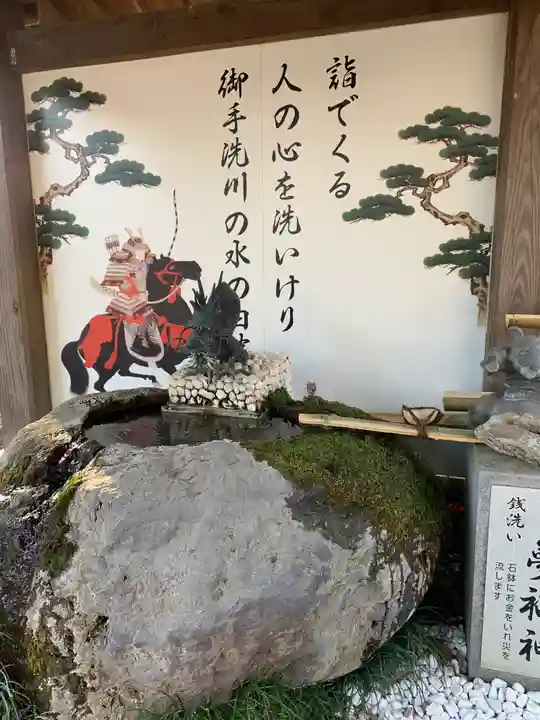 詣でくる
人の心を洗いけり
御手洗川の水の
銭洗い
石鉢にお金をいれ災を
流します
夢福神